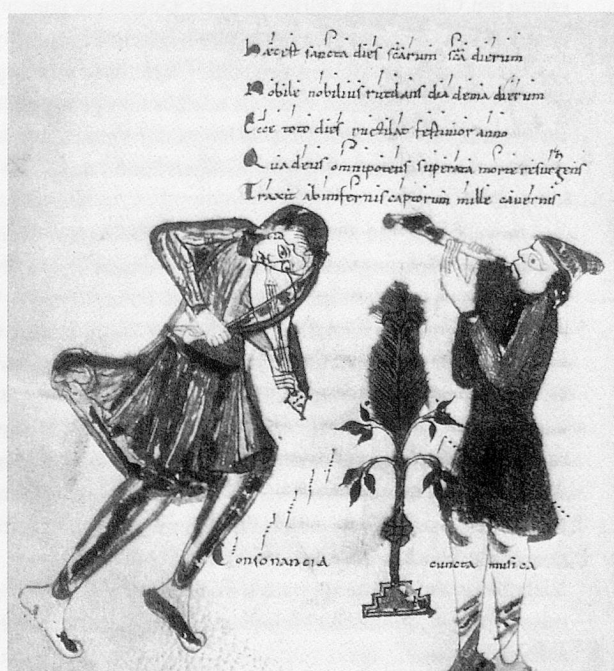 Hec est sancta dies scarum scā dierum
Nobile nobilius rutilans diadema dierum
Ecce toto dies rutilat festivior anno
Qua deus omnipotens superata morte resurgens
Traxit ab infernis captorum mille cavernis
Consonancia cuncta musica